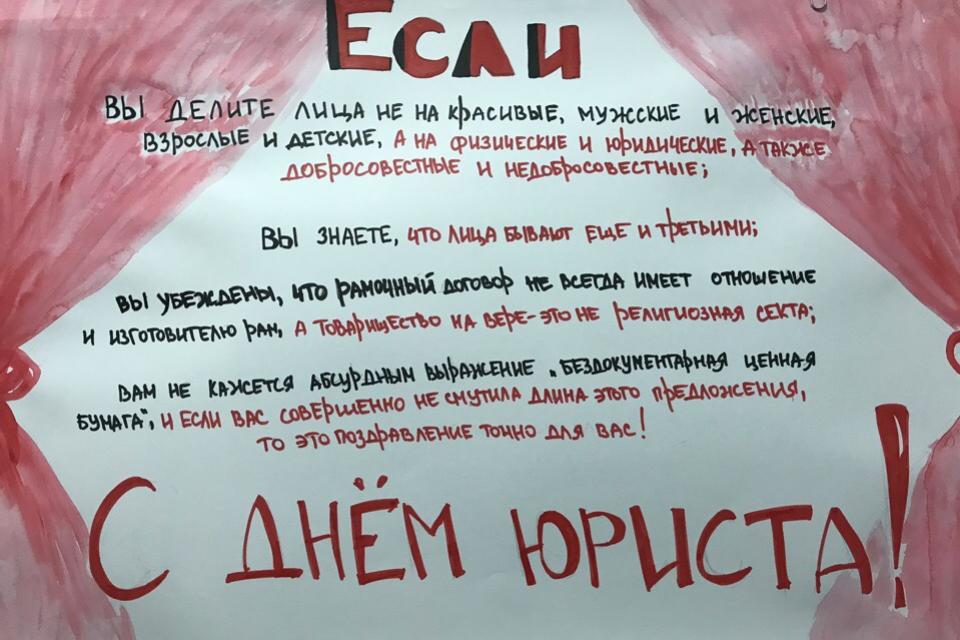 Если
ВЫ ДЕЛИТЕ ЛИЦА НЕ НА КРАСИВЫЕ, МУЖСКИЕ И ЖЕНСКИЕ,
ВЗРОСЛЫЕ И ДЕТСКИЕ, А НА ФИЗИЧЕСКИЕ И ЮРИДИЧЕСКИЕ, А ТАКЖЕ
ДОБРОСОВЕСТНЫЕ И НЕДОБРОСОВЕСТНЫЕ;
ВЫ ЗНАЕТЕ, ЧТО ЛИЦА БЫВАЮТ ЕЩЕ И ТРЕТЬИМИ;
ВЫ УБЕЖДЕНЫ, ЧТО РАМОЧНЫЙ ДОГОВОР НЕ ВСЕГДА ИМЕЕТ ОТНОШЕНИЕ
И ИЗГОТОВИТЕЛЮ РАМ, А ТОВАРИЩЕСТВО НА ВЕРЕ-ЭТО НЕ РЕЛИГИОЗНАЯ СЕКТА;
ВАМ НЕ КАЖЕТСЯ АБСУРДНЫМ ВЫРАЖЕНИЕ „БЕЗДОКУМЕНТАРНАЯ ЦЕННАЯ
БУМАГА", И ЕСЛИ ВАС СОВЕРШЕННО НЕ СМУТИЛА ДЛИНА ЭТОГО ПРЕДЛОЖЕНИЯ,
ТО ЭТО ПОЗДРАВЛЕНИЕ ТОЧНО ДЛЯ ВАС!
С ДНЁМ ЮРИСТА!